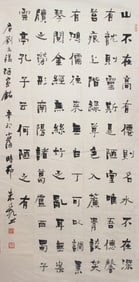 山不在高有僊則名水不在深
有龍則靈斯是陋室惟吾德馨
苔痕上階綠草色入簾青談笑
有鴻儒往來無白丁可以調素
琴閱金經無絲竹之亂耳無案
牘之勞形南陽諸葛廬西蜀子
雲亭孔子云何陋之有
唐劉禹錫陋室銘